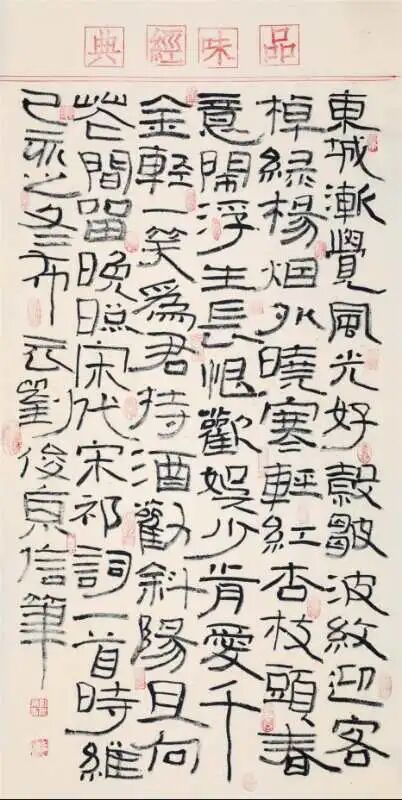 品味經典
東城漸覺風光好縠皺波紋迎客
棹綠楊烟外曉寒輕紅杏枝頭春
意鬧浮生長恨歡娛少肯愛千
金輕一笑爲君持酒勸斜陽且向
花間留晚照宋代宋祁詞一首時維
己亥之冬布劉俊信筆